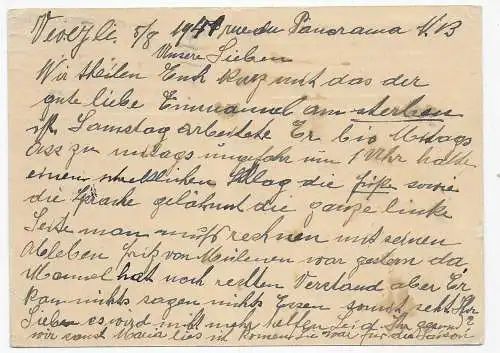 5/8 1941 rue du Panorama 1.B
Unsere Lieben
Wir theilen Euch kurz mit das der
gute liebe Emmanuel am sterben
ist. Samstag arbeitete Er bis Mittags
Ass zu mittags ungefähr um 1 Uhr hatte
einen Schlag die füsse sowie
die Sprache gelähmt die ganze linke
Seite man muss rechnen mit seinen
Ableben fritz von Mülenen war gestern da
Mannel hat noch rechten Verstand aber Er
kan nichts sagen nichts Essen sonst
Lieben es wird nicht mehr Leid Ihr
wir sand Maria lies in komen sie war für die Saison